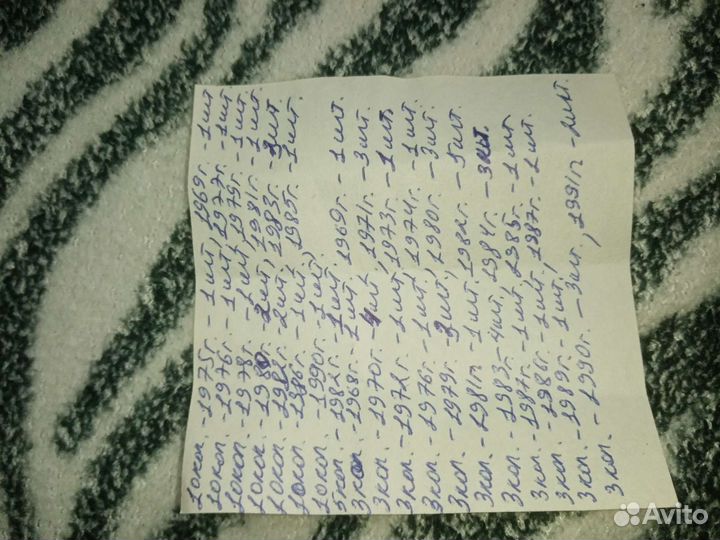 10коп. -1975г. -1шт, 1969г. -1шт
10коп. -1976г. -1шт, 1977г. -1шт
10коп. -1978г. -1шт, 1979г. -1шт.
10коп. -1980г. -2шт, 1981г. -1шт.
10коп. -1982г. -2шт, 1983г. -3шт.
10коп. -1986г. -1шт, 1985г. -1шт.
10коп. -1990г. -1шт,
5коп. -1982г. -1шт.
3коп. -1968г. -1шт, 1969г. -1шт.
3коп. -1970г. -4шт, 1971г. -3шт.
3коп. -1972г. -1шт, 1973г. -1шт.
3коп. -1976г. -1шт, 1974г. -1шт.
3коп. -1979г. -2шт, 1980г. -3шт.
3коп. -1981г. -1шт, 1982г. -5шт.
3коп. -1983 -4шт, 1984г. -3шт.
3коп. -1987г. -1шт, 1985г. -1шт.
3коп. -1986г. -1шт, 1987г. -1шт.
3коп. -1989г. -1шт,
3коп. -1990г. -3шт, 1991г. -2шт.
Avito